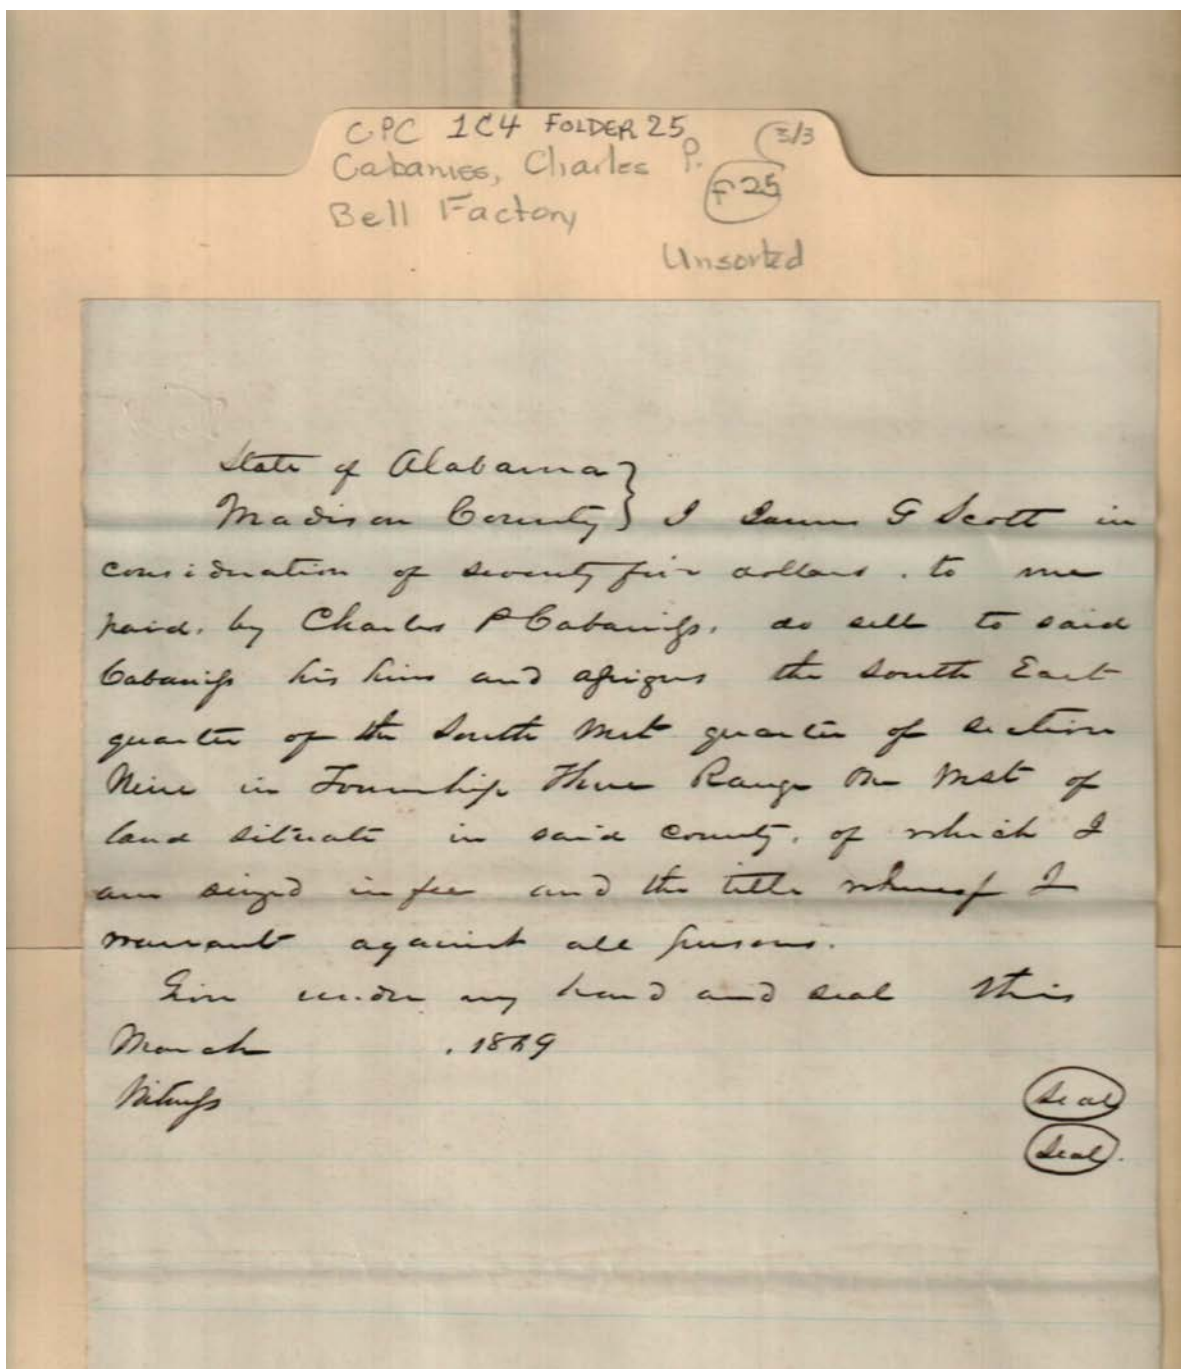 CPC 1C4 FOLDER 25 3/3
Cabaniss, Charles P.
F 25
Bell Factory
Unsorted
State of Alabama }
Madison County } I James G Scott in
consideration of seventy five dollars . to me
paid. by Charles P Cabaniss. do sell to said
Cabaniss his heirs and assigns the South East
quarter of the South West quarter of section
Nine in Township Three Range One West of
land situate in said county. of which I
am seized in fee and the title whereof I
warrant against all persons.
Given under my hand and seal this
March . 1869
Witness
Seal
Seal.